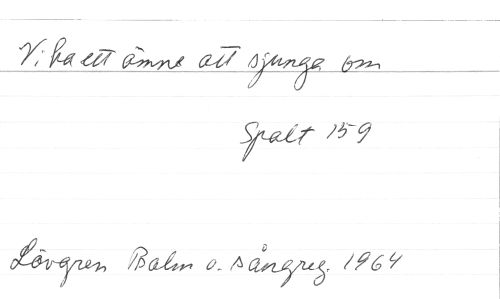 Vi ha ett ämne att sjunga om
Spalt 159
Lövgren Psalm o. sångreg. 1964